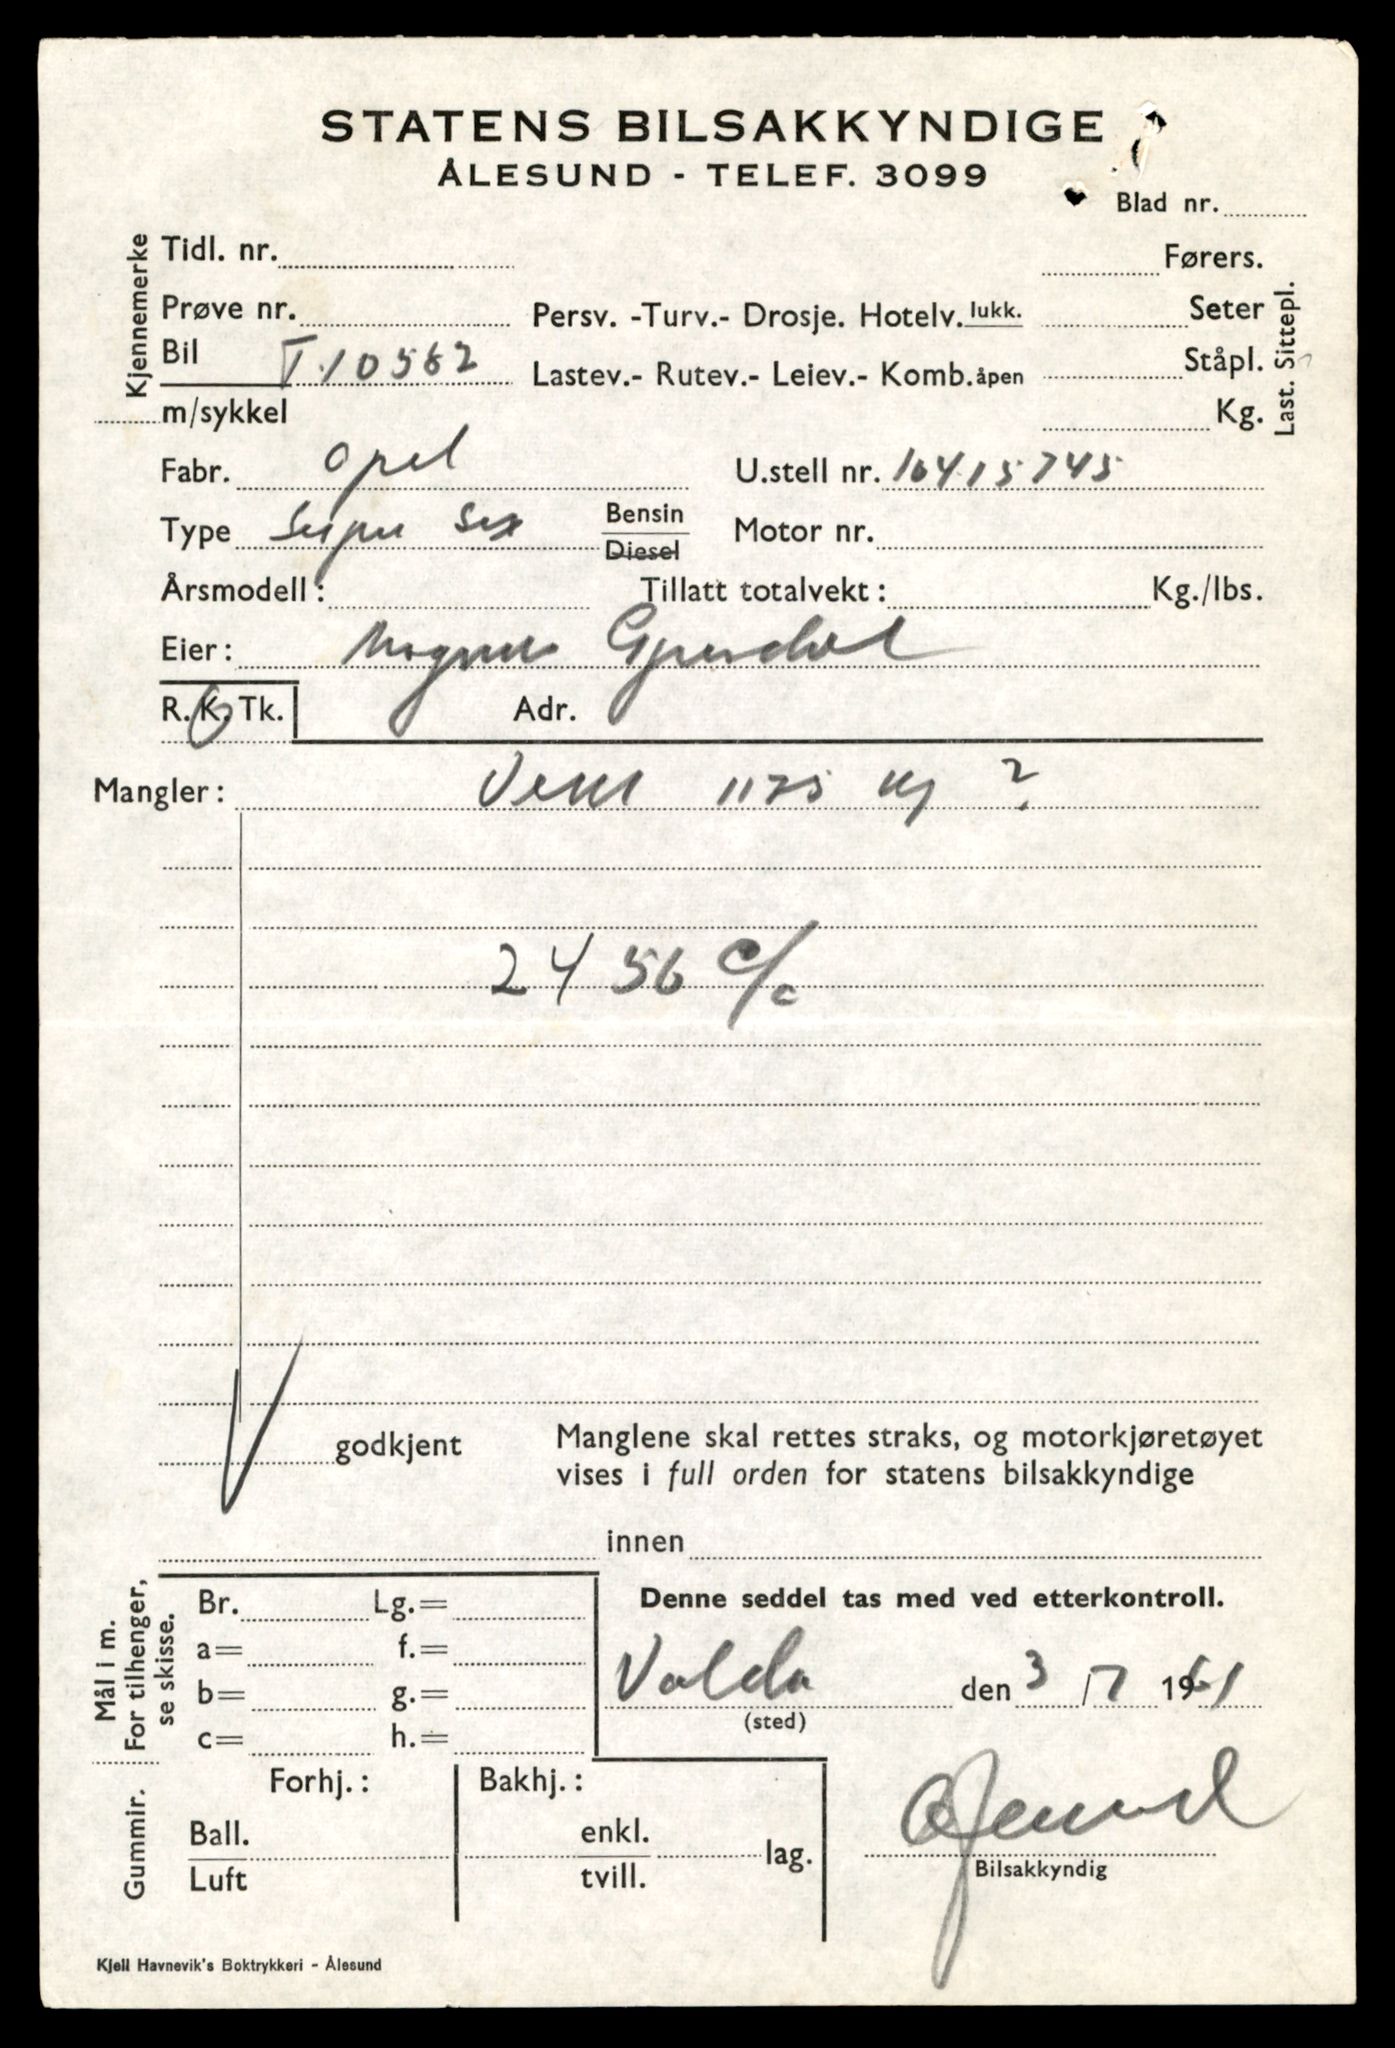 STATENS BILSAKKYNDIGE
ÅLESUND - TELEF. 3099
Blad nr.
Kjennemerke
Tidl. nr.
Førers.
Prøve nr.
Persv. -Turv.- Drosje. Hotelv. lukk.
Seter
Bil T.10562
Lastev.- Rutev.- Leiev.- Komb. åpen
Ståpl.
m/sykkel
Kg.
Last. Sittepl.
Fabr. Opel
U.stell nr. 10415745
Type Super Six
Bensin
Diesel
Motor nr.
Årsmodell:
Tillatt totalvekt: Kg./lbs.
Eier: Magnus
R. K. Tk.
Adr.
Mangler: Vekt 1175 kg ?
2456 c/c
V godkjent
Manglene skal rettes straks, og motorkjøretøyet
vises i full orden for statens bilsakkyndige
innen
Mål i m.
For tilhenger,
se skisse.
Br. Lg.=
a= f.=
b= g.=
c= h.=
Denne seddel tas med ved etterkontroll.
Volda den 3/7 1961
(sted)
Gummir.
Forhj.:
Bakhj.:
Ball.
Luft
enkl.
tvill.
lag.
Bilsakkyndig
Kjell Havnevik's Boktrykkeri - Ålesund